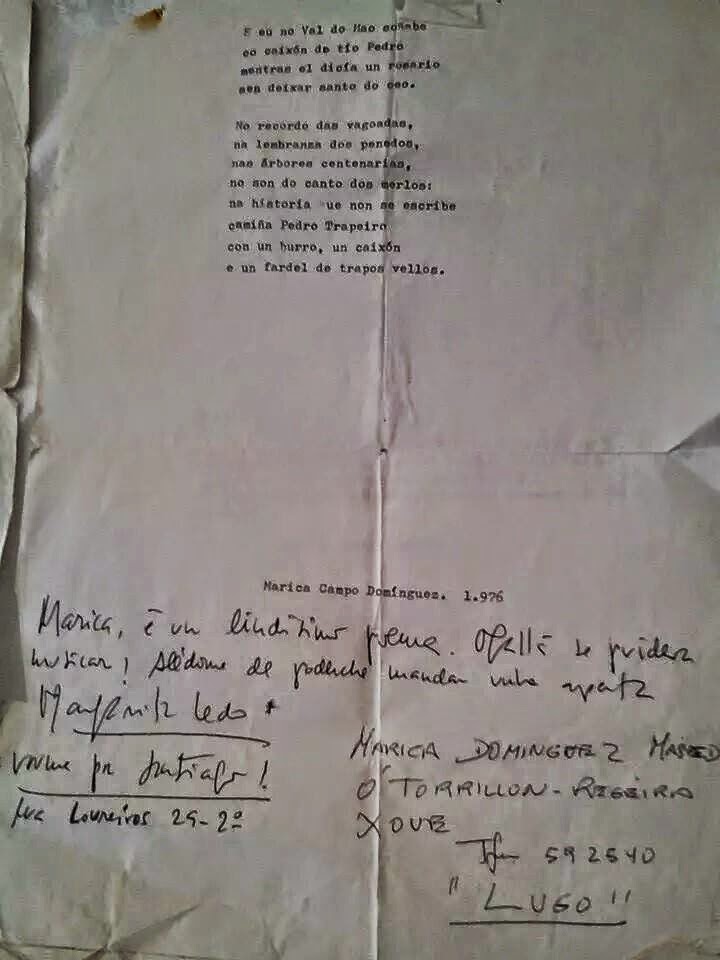 E eu no Val do Mao soñaba
co caixón de tío Pedro
mentras el dicía un rosario
sen deixar santo do ceo.
No recordo das vagoadas,
na lembranza dos penedos,
nas árbores centenarias,
no son do canto dos merlos:
na historia ue non se escribe
camiña Pedro Trapeiro
con un burro, un caixón
e un fardel de trapos vellos.
Marica Campo Domínguez. 1.976
Marica, é un lindísimo poema. Ogallá se puidera
musicar! Alédome de poderche mandar unha aperta
Margarita Ledo
vivine pra Santiago!
Loureiros 29-2º
MARICA DOMINGUEZ MASED
O'TORRILLON-REGEIRA
XOVE
Tfn 592540
"LUGO"